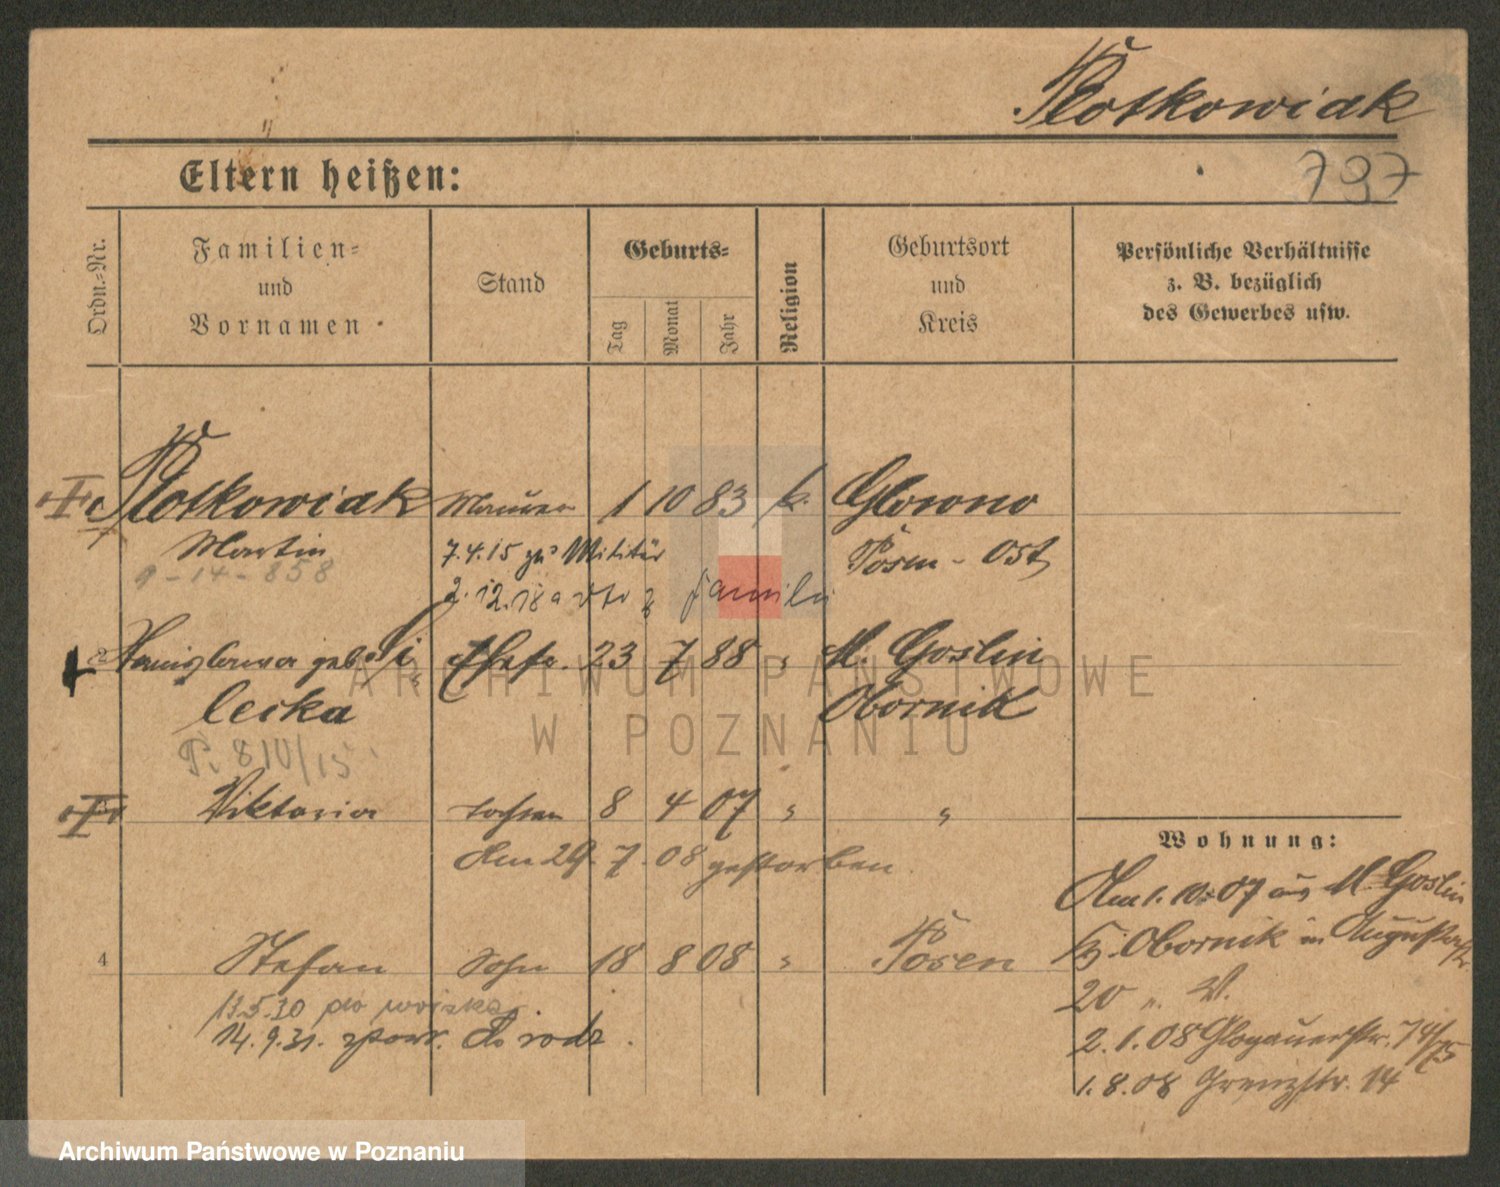 Płotkowiak
797
Eltern heißen:
Ordn.-Nr.
Familien-
und
Vornamen
Stand
Geburts-
Tag
Monat
Jahr
Religion
Geburtsort
und
Kreis
Persönliche Verhältnisse
z. B. bezüglich
des Gewerbes usw.
Płotkowiak Maurer 1 10 83 k. Glowno
Martin 7.4.15 zum Militär Posen - Ost
9-14-858
2.12.18 a dto z Famili
2 Stanislawa geb. Si Ehefr. 23 7 88 " M. Goslin
lecka Obornik
P. 810/15
Viktoria Tochter 8 4 07 " "
Am 29. 7. 08 gestorben.
4 Stefan Sohn 18 8 08 " Posen
13.5.30 do wojska
14.9.31. zpowr. do rodz.
Wohnung:
Am 1.10.07 aus M. Goslin
Kr. Obornik in Augustastr.
20 II. W.
2.1.08 Glogauerstr. 74/75
1.8.08 Grenzstr. 14
ARCHIWUM PAŃSTWOWE
W POZNANIU
Archiwum Państwowe w Poznaniu